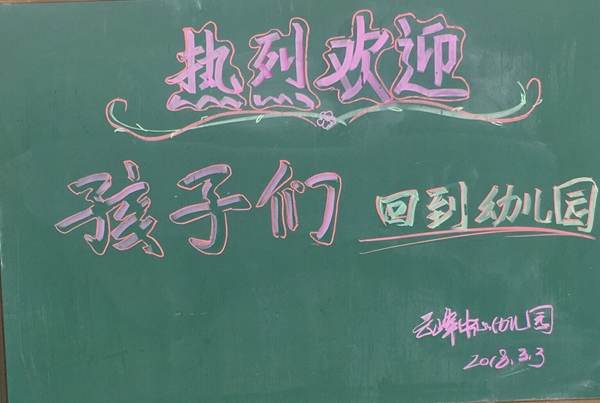 热烈欢迎
孩子们 回到幼儿园
云峰中心幼儿园
2018.3.3